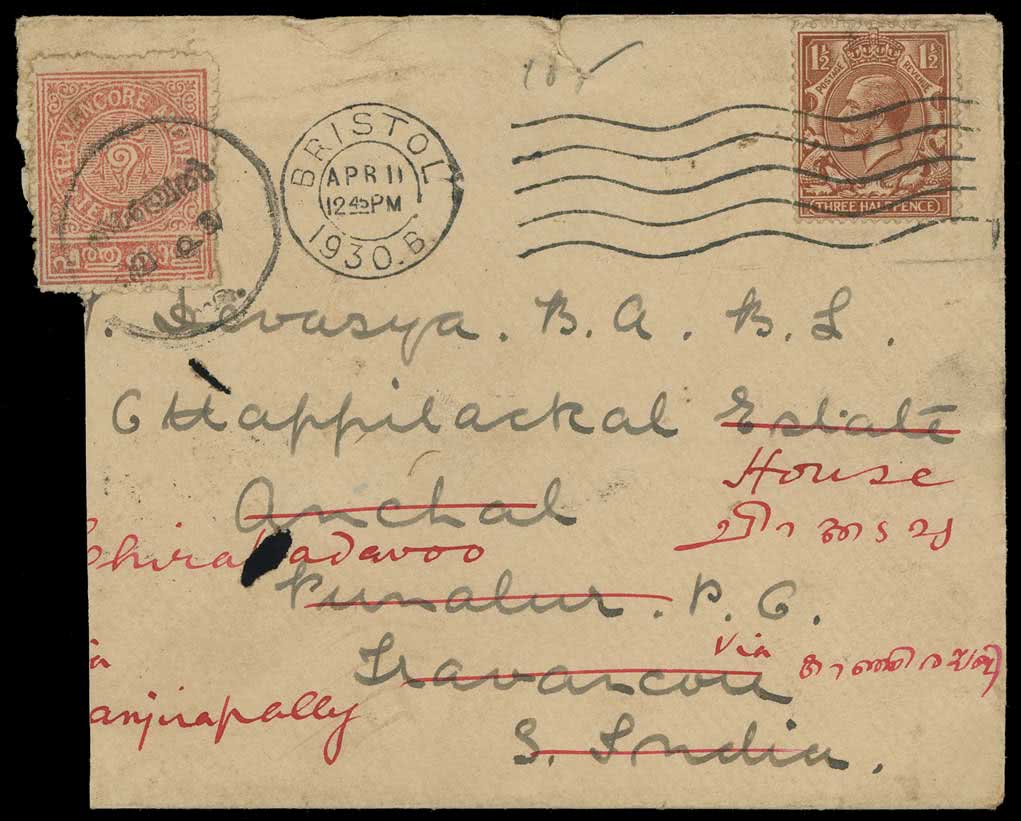 TRAVANCORE ANCHEL
BRISTOL
APR 11
12 45 PM
1930. B.
POSTAGE REVENUE
1½ 1½
THREE HALFPENCE
Devasya. B. A. B. L.
CHappilackal Estate
House
Anchal
ചിറക്കടവു
adavoo
Punalur. P. O.
Via
Travancore
anjirapally
S. India.